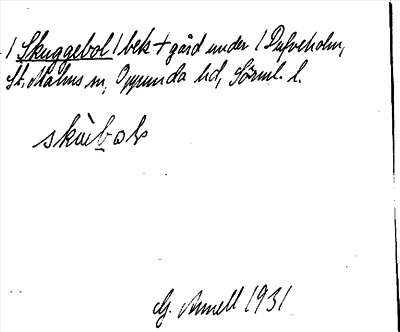 / Skuggebol / bek + gård under / Dufveholm,
St. Malms sn, Oppunda hd, Sörml. l.
skùebol
G. Annell 1931